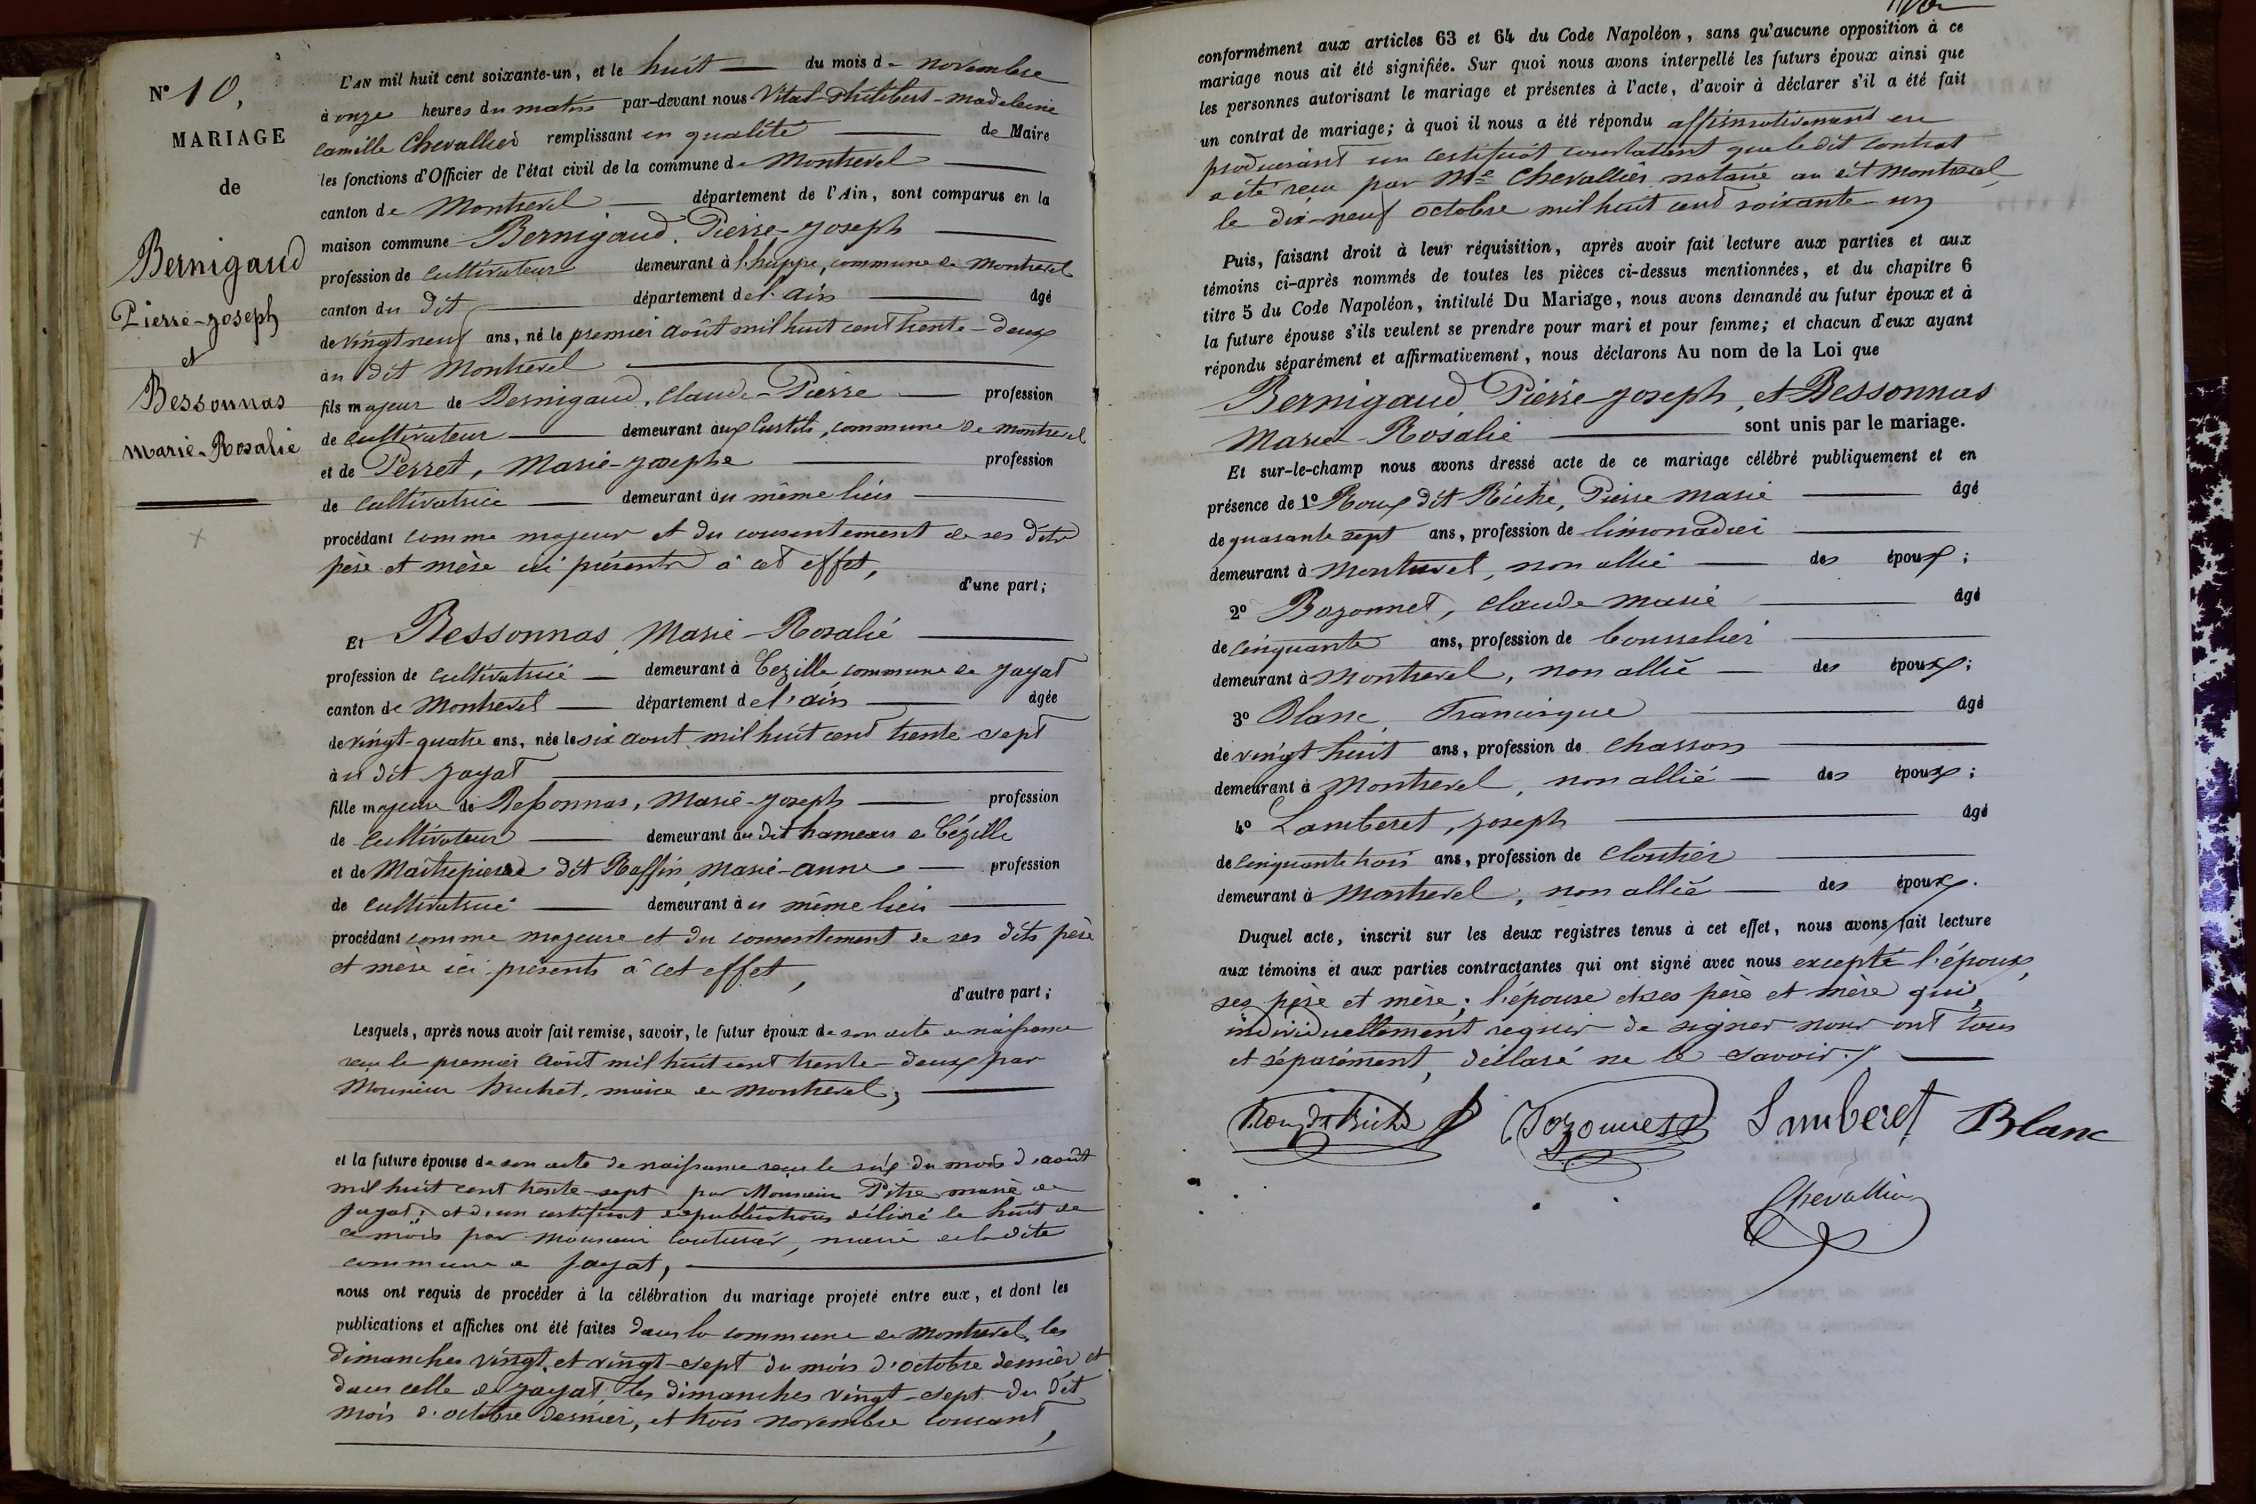 N° 10,
MARIAGE
de
Bernigaud
Pierre-Joseph
et
Bessonnas
Marie-Rosalie
L'AN mil huit cent soixante-un, et le huit du mois de novembre
à onze heures du matin par-devant nous Vital-Philibert-Madeleine
Camille Chevallier remplissant en qualité de Maire
les fonctions d'Officier de l'état civil de la commune de Montrevel
canton de Montrevel département de l'Ain, sont comparus en la
maison commune Bernigaud, Pierre-Joseph
profession de cultivateur demeurant à , commune de Montrevel
canton du dit département de l'ain âgé
de vingt neuf ans, né le premier août mil huit cent trente-deux
au dit Montrevel
fils majeur de Bernigaud, Claude-Pierre profession
de cultivateur demeurant aux , commune de Montrevel
et de Perret, Marie-Josephe profession
de cultivatrice demeurant au même lieu
procédant comme majeur et du consentement de ses dits
père et mère ici présents à cet effet,
d'une part;
Et Bessonnas, Marie-Rosalie
profession de cultivatrice demeurant à Cézille commune de Jayat
canton de Montrevel département de l'ain âgée
de vingt-quatre ans, née le six aout mil huit cent trente-sept
au dit Jayat
fille majeure de Bessonnas, Marie-Joseph profession
de cultivateur demeurant au dit hameau de Cézille
et de Maitrepierre dit Raffin, Marie-Anne profession
de cultivatrice demeurant au même lieu
procédant comme majeure et du consentement de ses dits père
et mère ici présents à cet effet,
d'autre part;
Lesquels, après nous avoir fait remise, savoir, le futur époux de son acte de naissance
reçu le premier août mil huit cent trente-deux par
Monsieur maire de Montrevel;
et la future épouse de son acte de naissance reçu le six du mois d'août
mil huit cent trente-sept par Monsieur Pitre maire de
Jayat; et d'un certificat de publications délivré le huit de
ce mois par monsieur Couturier, maire de la dite
commune de Jayat,
nous ont requis de procéder à la célébration du mariage projeté entre eux, et dont les
publications et affiches ont été faites dans la commune de Montrevel les
dimanches vingt et vingt-sept du mois d'octobre dernier et
dans celle de Jayat les dimanches vingt-sept du dit
mois d'octobre dernier, et trois novembre courant,
conformément aux articles 63 et 64 du Code Napoléon, sans qu'aucune opposition à ce
mariage nous ait été signifiée. Sur quoi nous avons interpellé les futurs époux ainsi que
les personnes autorisant le mariage et présentes à l'acte, d'avoir à déclarer s'il a été fait
un contrat de mariage; à quoi il nous a été répondu affirmativement en
produisant un certificat constatant que le dit contrat
a été reçu par Me Chevallier notaire au dit Montrevel,
le dix-neuf octobre mil huit cent soixante-un
Puis, faisant droit à leur réquisition, après avoir fait lecture aux parties et aux
témoins ci-après nommés de toutes les pièces ci-dessus mentionnées, et du chapitre 6
titre 5 du Code Napoléon, intitulé Du Mariage, nous avons demandé au futur époux et à
la future épouse s'ils veulent se prendre pour mari et pour femme; et chacun d'eux ayant
répondu séparément et affirmativement, nous déclarons Au nom de la Loi que
Bernigaud, Pierre-Joseph, et Bessonnas
Marie-Rosalie sont unis par le mariage.
Et sur-le-champ nous avons dressé acte de ce mariage célébré publiquement et en
présence de 1° Roux dit Riche, Pierre Marie âgé
de quarante sept ans, profession de limonadier
demeurant à Montrevel, non allié des époux;
2° Bozonnet, Claude Marie âgé
de cinquante ans, profession de bourrelier
demeurant à Montrevel, non allié des époux;
3° Blanc, Francisque âgé
de vingt huit ans, profession de charron
demeurant à Montrevel, non allié des époux;
4° Lamberet, Joseph âgé
de cinquante trois ans, profession de cloutier
demeurant à Montrevel, non allié des époux.
Duquel acte, inscrit sur les deux registres tenus à cet effet, nous avons fait lecture
aux témoins et aux parties contractantes qui ont signé avec nous excepté l'époux,
ses père et mère; l'épouse et ses père et mère qui,
individuellement requis de signer nous ont tous
et séparément, déclaré ne le savoir.
Roux dt Riche Bozonnet Lamberet Blanc
Chevallier